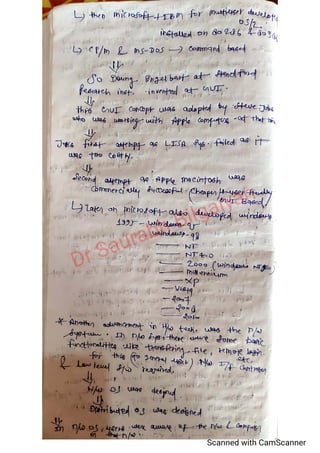 ↳ then microsoft + IBM for multiuser developed
OS/2
installed on 80286 &
↳ CP/M & MS-DOS → command based
So Doung Engelbart at Stanford
Research inst. invented at GUI.
this GUI concept was adopted by Steve Jobs
who was working with Apple computers at that
Jobs first attempt as LISA sys. failed as it
was too costly.
Second attempt as Apple macintosh was
commercially successful (cheaper & user friendly
GUI Based)
↳ Later on microsoft also developed windows
1995 - windows 95
windows-98
NT
NT 4.0
2000 (windows NT
millennium
XP
Vista
2007
* Another advancement in H/w tech. was the N/w
system. In N/w sys. there were some basic
functionalities like transfering file, remote login
etc.
for this N/w I/f
& low level S/w required.
N/w OS was design
Distributed OS was designed
In N/w OS, users were aware of the N/w & computers
in the N/w.
Scanned with CamScanner